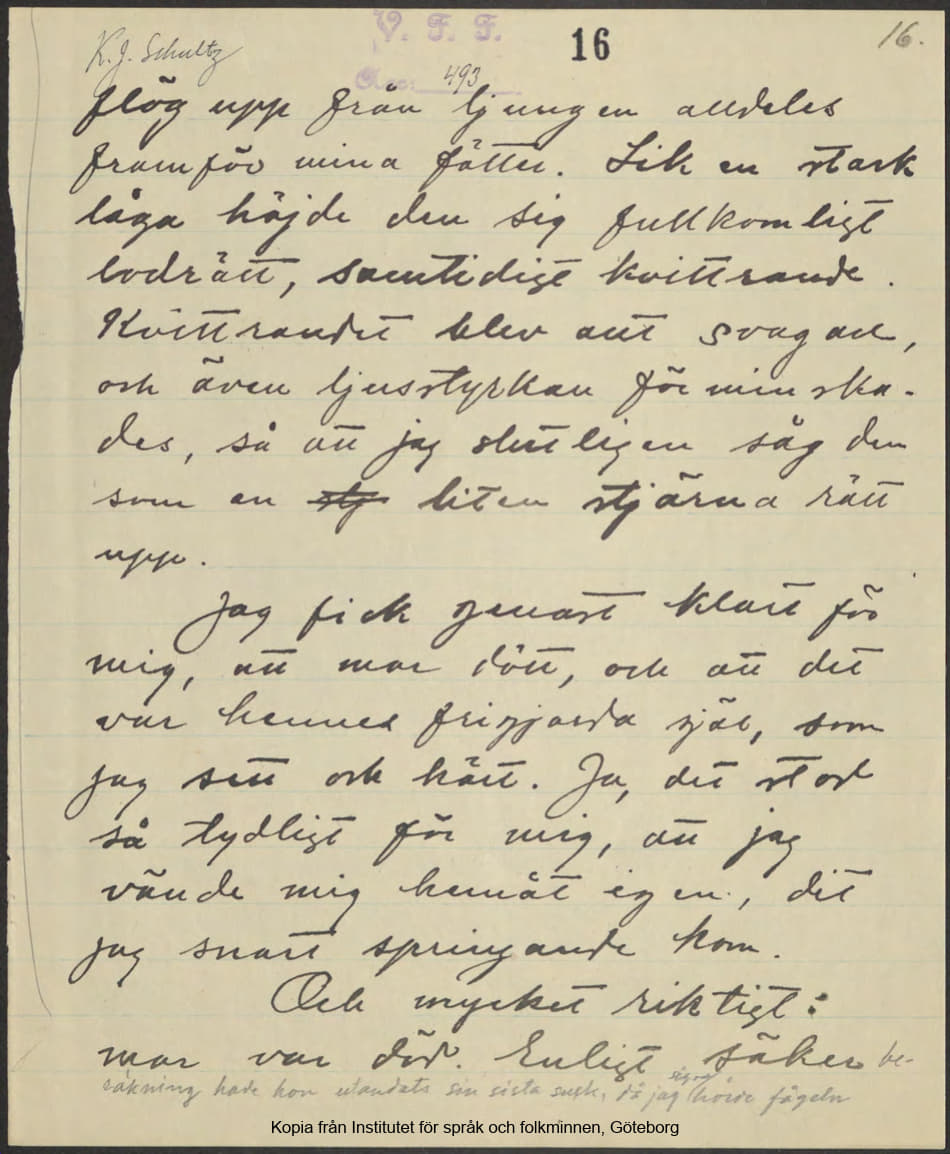 K. J. Schultz
V. F. F.
16
16.
Acc. 493
flög upp från ljungen alldeles
framför mina fötter. Lik en stark
låga höjde den sig fullkomligt
lodrätt, samtidigt kvittrande.
Kvittrandet blev allt svagare,
och även ljusstyrkan förminska-
des, så att jag slutligen såg den
som en stj liten stjärna rätt
upp.
Jag fick genast klart för
mig, att mor dött, och att det
var hennes frigjorda själ, som
jag sett och hört. Ja, det stod
så tydligt för mig, att jag
vände mig hemåt igen, dit
jag snart springande kom.
Och mycket riktigt:
mor var död. Enligt säker be-
räkning hade hon utandats sin sista suck, då jag såg och hörde fågeln
Kopia från Institutet för språk och folkminnen, Göteborg